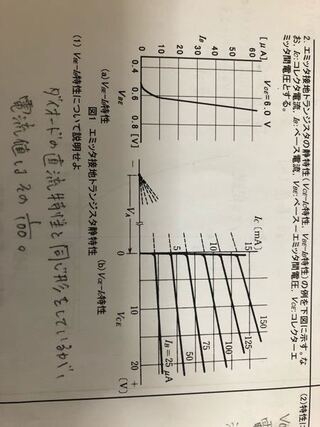 2. エミッタ接地トランジスタの静特性（VCE–IC特性、VBE–IB特性）の例を下図に示す。な
お、IC:コレクタ電流、IB:ベース電流、VBE:ベース–エミッタ間電圧、VCE:コレクターエ
ミッタ間電圧とする。
[μA]
VCE=6.0 V
60
50
40
30
20
10
0
IB
0.4 0.6 0.8 [V]
VBE
(a)VBE–IB特性
IC (mA)
15
10
5
0
150
125
100
75
50
IB=25 μA
VA
− 0 10 20 +
VCE (V)
(b)VCE–IC特性
図1 エミッタ接地トランジスタ静特性
(1) VBE–IB特性について説明せよ
ダイオードの直流特性と同じ形をしているが
電流値はその 1/100。
(2)特性に